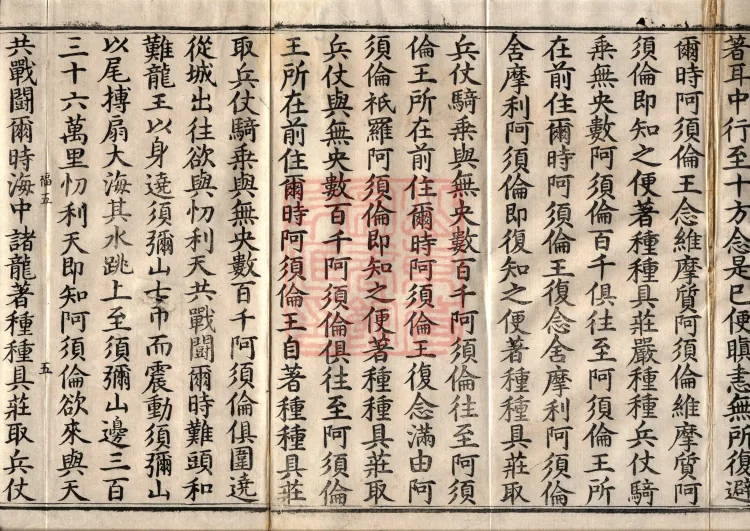 著耳中行至十方念是已便瞋恚無所復避
爾時阿須倫王念維摩質阿須倫維摩質阿
須倫即知之便著種種具莊嚴種種兵仗騎
乘無央數阿須倫百千俱往至阿須倫王所
在前住爾時阿須倫王復念舍摩利阿須倫
舍摩利阿須倫即復知之便著種種具莊取
兵仗騎乘與無央數百千阿須倫往至阿須
倫王所在前住爾時阿須倫王復念滿由阿
須倫祇羅阿須倫即知之便著種種具莊取
兵仗與無央數百千阿須倫俱往至阿須倫
王所在前住爾時阿須倫王自著種種具莊
取兵仗騎乘與無央數百千阿須倫俱圍遶
從城出往欲與忉利天共戰鬪爾時難頭和
難龍王以身遶須彌山七帀而震動須彌山
以尾搏扇大海其水跳上至須彌山邊三百
三十六萬里忉利天即知阿須倫欲來與天
福五 五
共戰鬪爾時海中諸龍著種種具莊取兵仗